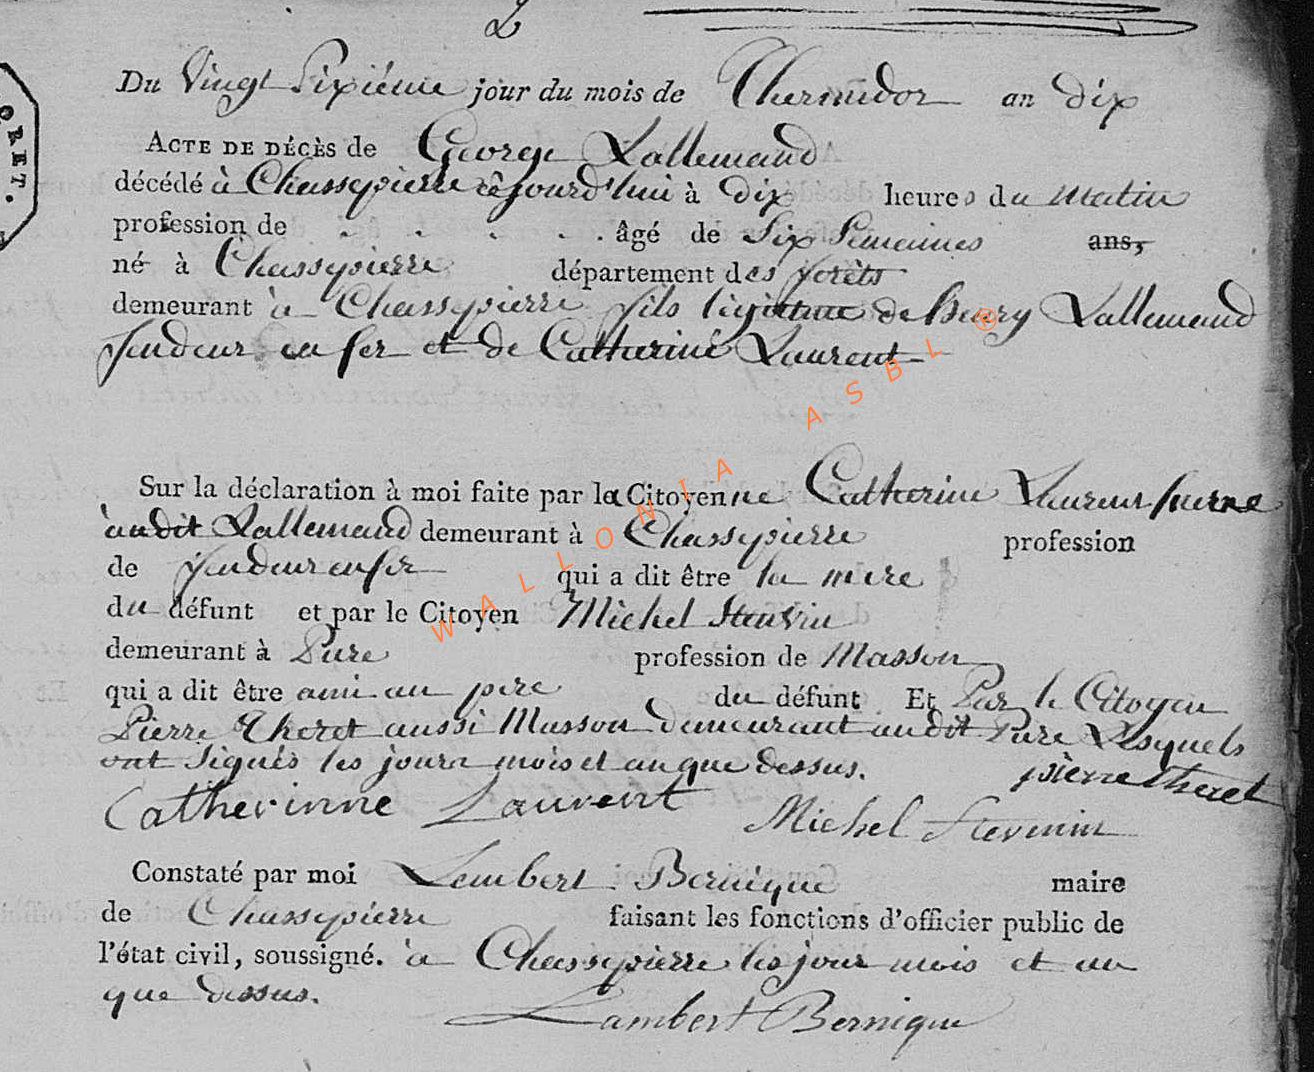 2
CRET.
Du Vingt Sixiéme jour du mois de Thermidor an dix
ACTE DE DÉCÈS de George Lallemand
décédé à Chassepierre cejourd'hui à dix heures du matin
profession de . . . . . âgé de Six Semaines ans,
né à Chassepierre département des forêts
demeurant à Chassepierre fils légitime de Henry Lallemand
fendeur en fer et de Catherine Laurent
Sur la déclaration à moi faite par la Citoyenne Catherine Laurent
audit Lallemand demeurant à Chassepierre profession
de fendeur en fer qui a dit être la mere
du défunt et par le Citoyen Michel Stevenin
demeurant à Pure profession de Masson
qui a dit être ami au pere du défunt Et Par le Citoyen
Pierre Theret aussi Masson demeurant audit Pure Lesquels
ont signés les jours mois et an que dessus. pierre theret
Catherinne Laurent Michel Stevenin
Constaté par moi Lambert Bernique maire
de Chassepierre faisant les fonctions d'officier public de
l'état civil, soussigné. à Chassepierre les jour mois et an
que dessus.
Lambert Bernique
WALLONIA ASBL ®